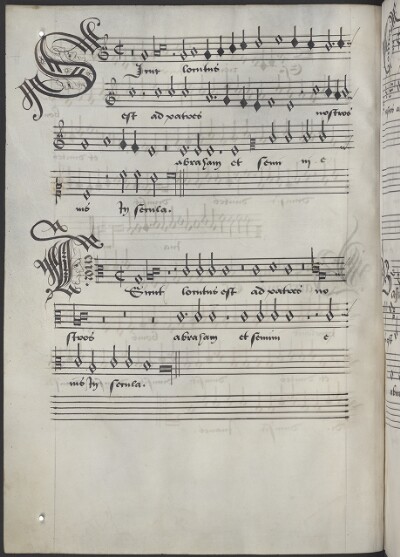 Sicut locutus
est ad patres nostros
abraham et semini e
ius In secula.
Sicut locutus est ad patres no
stros abraham et semini e
ius In secula.